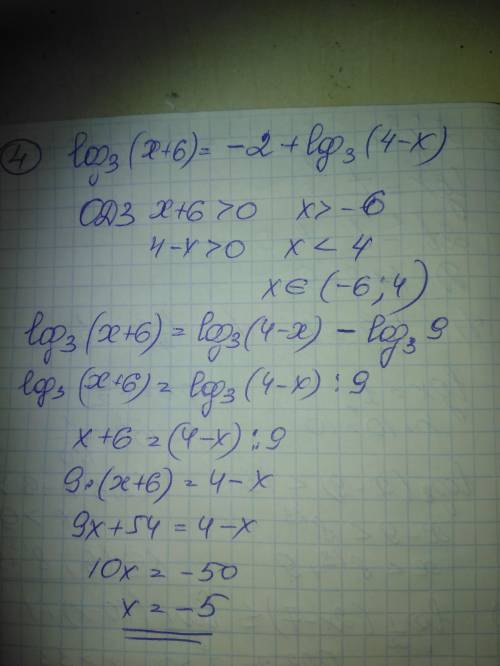 4 log₃(x+6) = -2 + log₃(4-x)
ОДЗ x+6>0 x>-6
4-x>0 x<4
x∈(-6;4)
log₃(x+6) = log₃(4-x) - log₃9
log₃(x+6) = log₃(4-x):9
x+6 = (4-x):9
9·(x+6) = 4-x
9x+54 = 4-x
10x = -50
x = -5